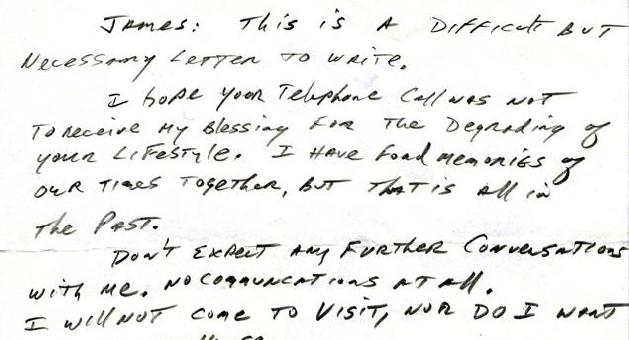 James: This is a Difficult But
Necessary Letter to write.
I hope your Telephone Call was not
To receive my Blessing for the Degrading of
your Lifestyle. I have fond memories of
our times together, but that is all in
the Past.
Don't Expect any further Conversations
with me. No Communcations at all.
I will not come to visit, nor do I want